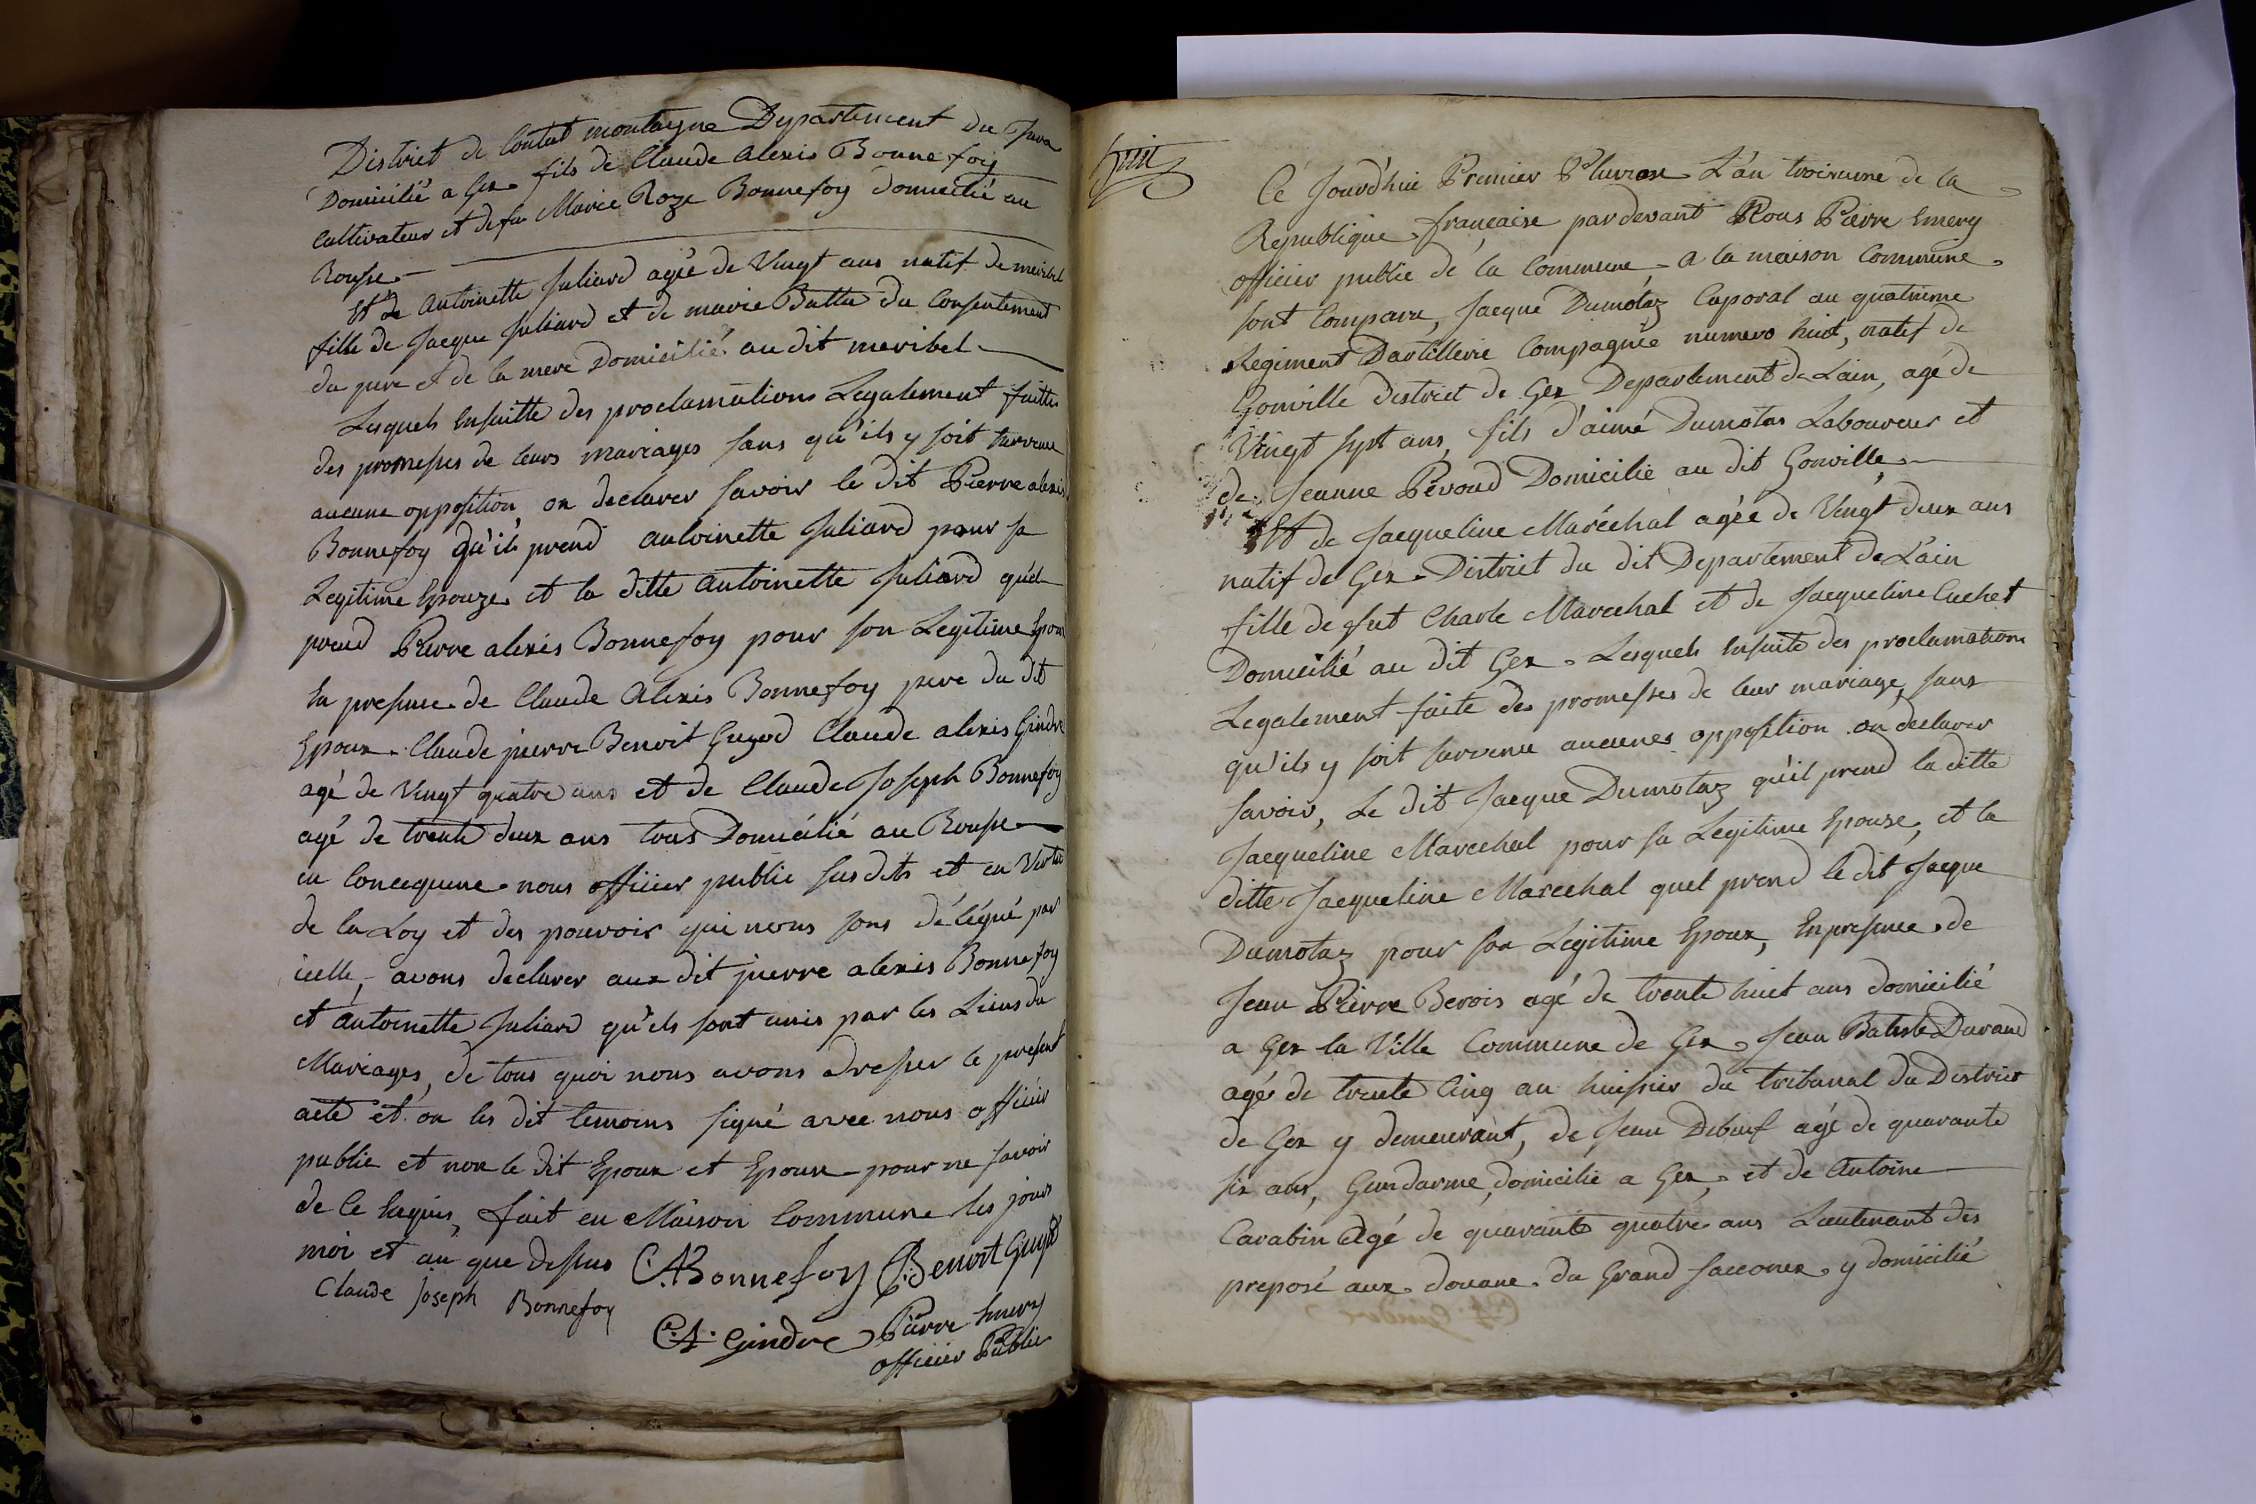 District de Contat montagne Departement du Jura
Domicilié a Gex fils de Claude Alexis Bonnefoy
Cultivateur et defu Marie Roze Bonnefoy domicilié au
Rousse
Et de Antoinette Juliard agée de Vingt ans natif de meribel
fille de Jacque Juliard et de marie Battu du Consentement
du pere et de la mere Domicilié au dit meribel
Lesquels Ensuitte des proclamations Legalement faittes
des promesses de leurs mariages sans qu'ils y soit survenue
aucune opposition on declarer savoir le dit Pierre alexis
Bonnefoy qu'il prend antoinette Juliard pour sa
Legitime Epouze et la ditte Antoinette Juliard quel
prend Pierre alexis Bonnefoy pour son Legitime Epoux
En presence de Claude Alexis Bonnefoy pere du dit
Epoux Claude pierre Benoit Guyod Claude alexis Gindre
agé de Vingt quatre ans et de Claude Joseph Bonnefoy
agé de trente deux ans tous Domicilié au Rousse
en Concequene nous officier public susdits et en Vertu
de la Loy et des pouvoir qui nous sons délégué par
icelle, avons declarer aux dit pierre alexis Bonnefoy
et Antoinette Juliard qu'ils sont unis par les Liens du
Mariages, de tous quoi nous avons dresser le present
acte et on les dit temoins signé avec nous officier
public et non le dit Epoux et Epouse pour ne savoir
de Ce Requis, fait en Maison Commune les jours
moi et an que dessus CABonnefoy CPBenoit Guyod
Claude Joseph Bonnefoy
C.A. Gindre Pierre Emery
officier Public
huit
Cé Jourd'hui Premier Pluviose L'an troisieme de la
Republique française pardevant Nous Pierre Emery
officier public de la Commune a la maison Commune
sont Comparu, Jacque Dumotaz Caporal au quatrieme
Regiment Dartillerie Compagnie numero huit, natif de
Gonville district de Gex Departement de Lain, agé de
Vingt sept ans, fils d'aimé Dumotas Laboureur et
de Jeanne Péroud Domicilié au dit Gonville
Et de Jacqueline Maréchal agée de Vingt deux ans
natif de Gex District du dit Departement de L'ain
fille de fut Charle Marechal et de Jacqueline Cuchet
Domicilié au dit Gex Lesquels Ensuite des proclamations
Legalement faite des promesses de leur mariage, sans
qu'ils y soit survenu aucunes opposition on declarer
savoir, Le dit Jacque Dumotaz qu'il prend la ditte
Jacqueline Marechal pour sa Legitime Epouse, et la
ditte Jacqueline Marechal quel prend le dit Jacque
Dumotaz pour son Legitime Epoux, En presence de
Jean Pierre Berois agé de trente huit ans domicilié
a Gex la Ville Commune de Gex, Jean Batiste Durand
agés de trente Cinq an huissier du tribunal du District
de Gex y demeurant, de Jean Debeuf agé de quarante
six ans, Gendarme, domicilié a Gex, et de Antoine
Carabin Agé de quarante quatre ans Lieutenant des
preposé aux douane du Grand Sacconex y domicilié